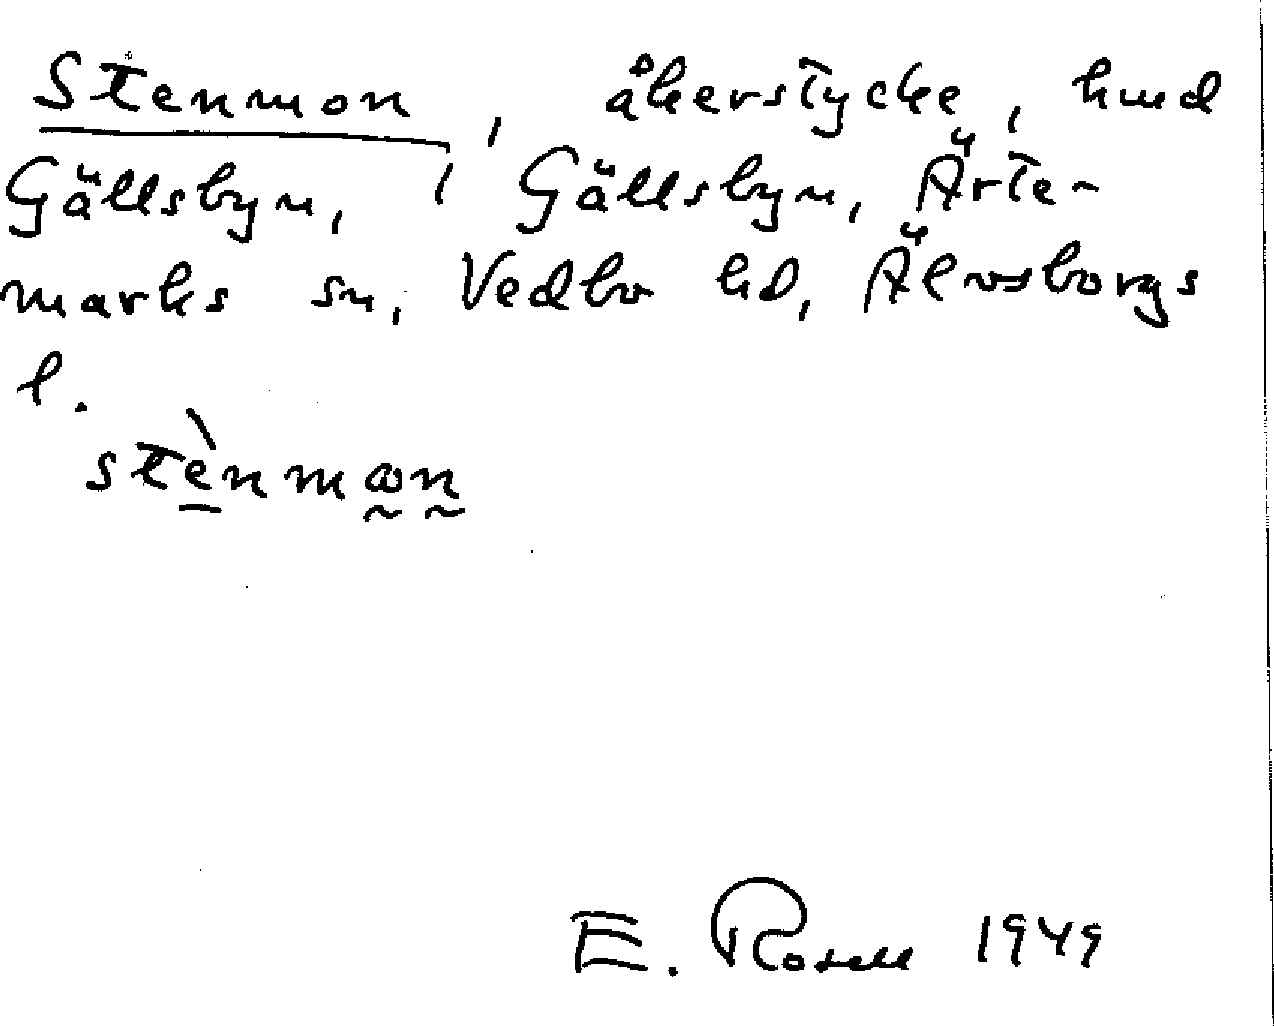 Stenmon, åkerstycke, hmd
Gällsbyn, i Gällsbyn, Ärte-
marks sn, Vedbo hd, Älvsborgs
l.
stènmωn
E. Rosell 1949